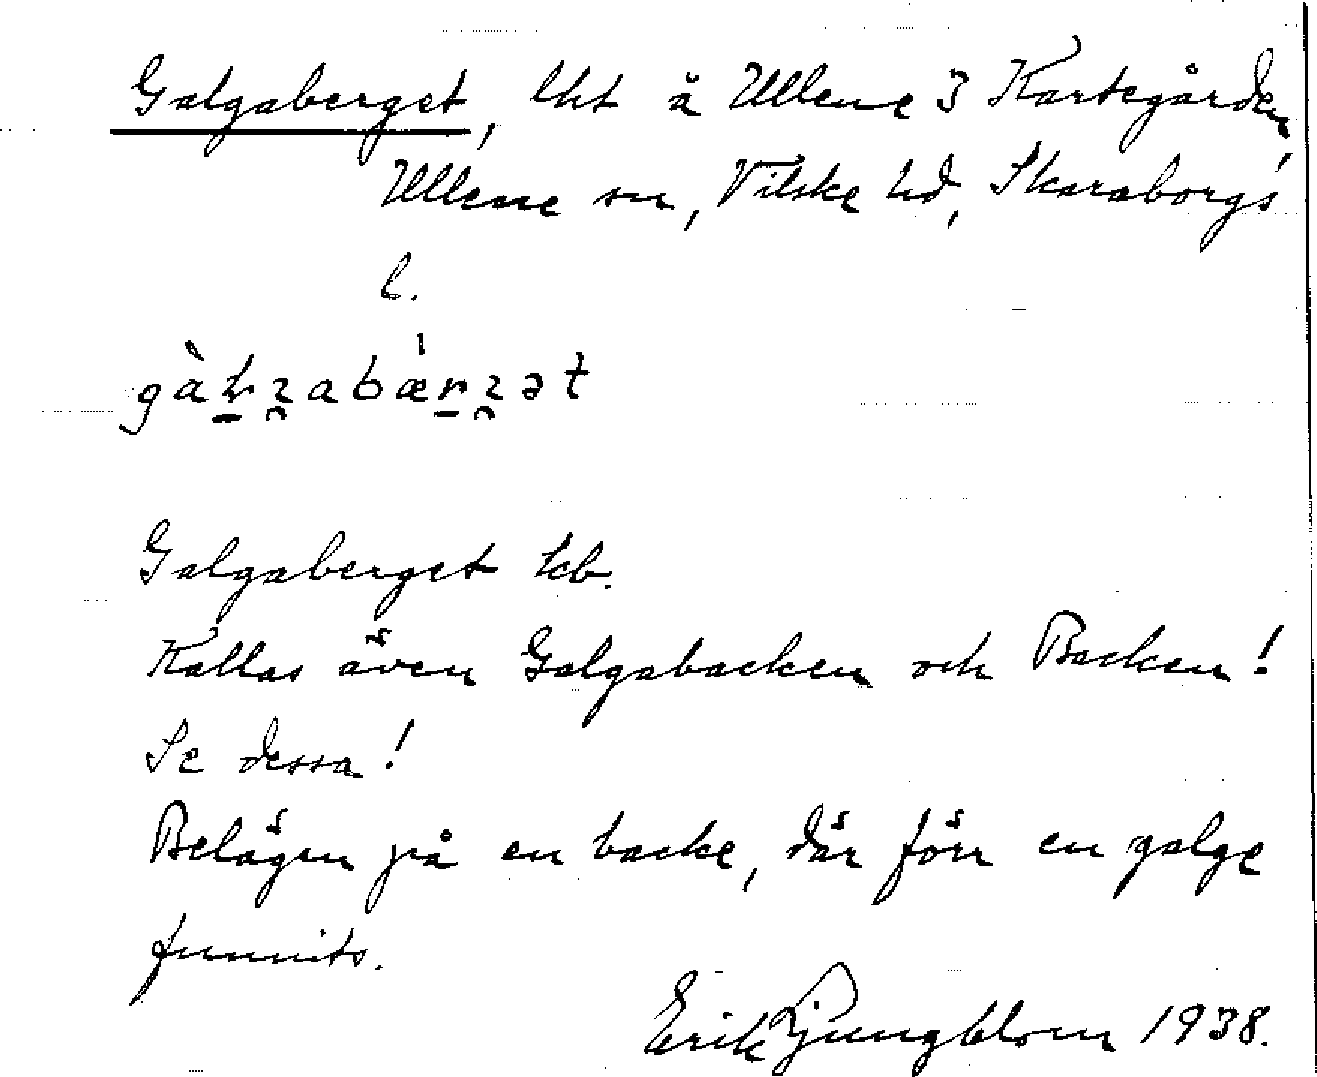 Galgaberget, lht å Ullene 3 Kartegården,
Ullene sn, Vilske hd, Skaraborgs
l.
Galgaberget kb.
Kallas även Galgabacken och Backen!
Se dessa!
Belägen på en backe, där förr en galge
funnits.
Erik Ljungblom 1938.